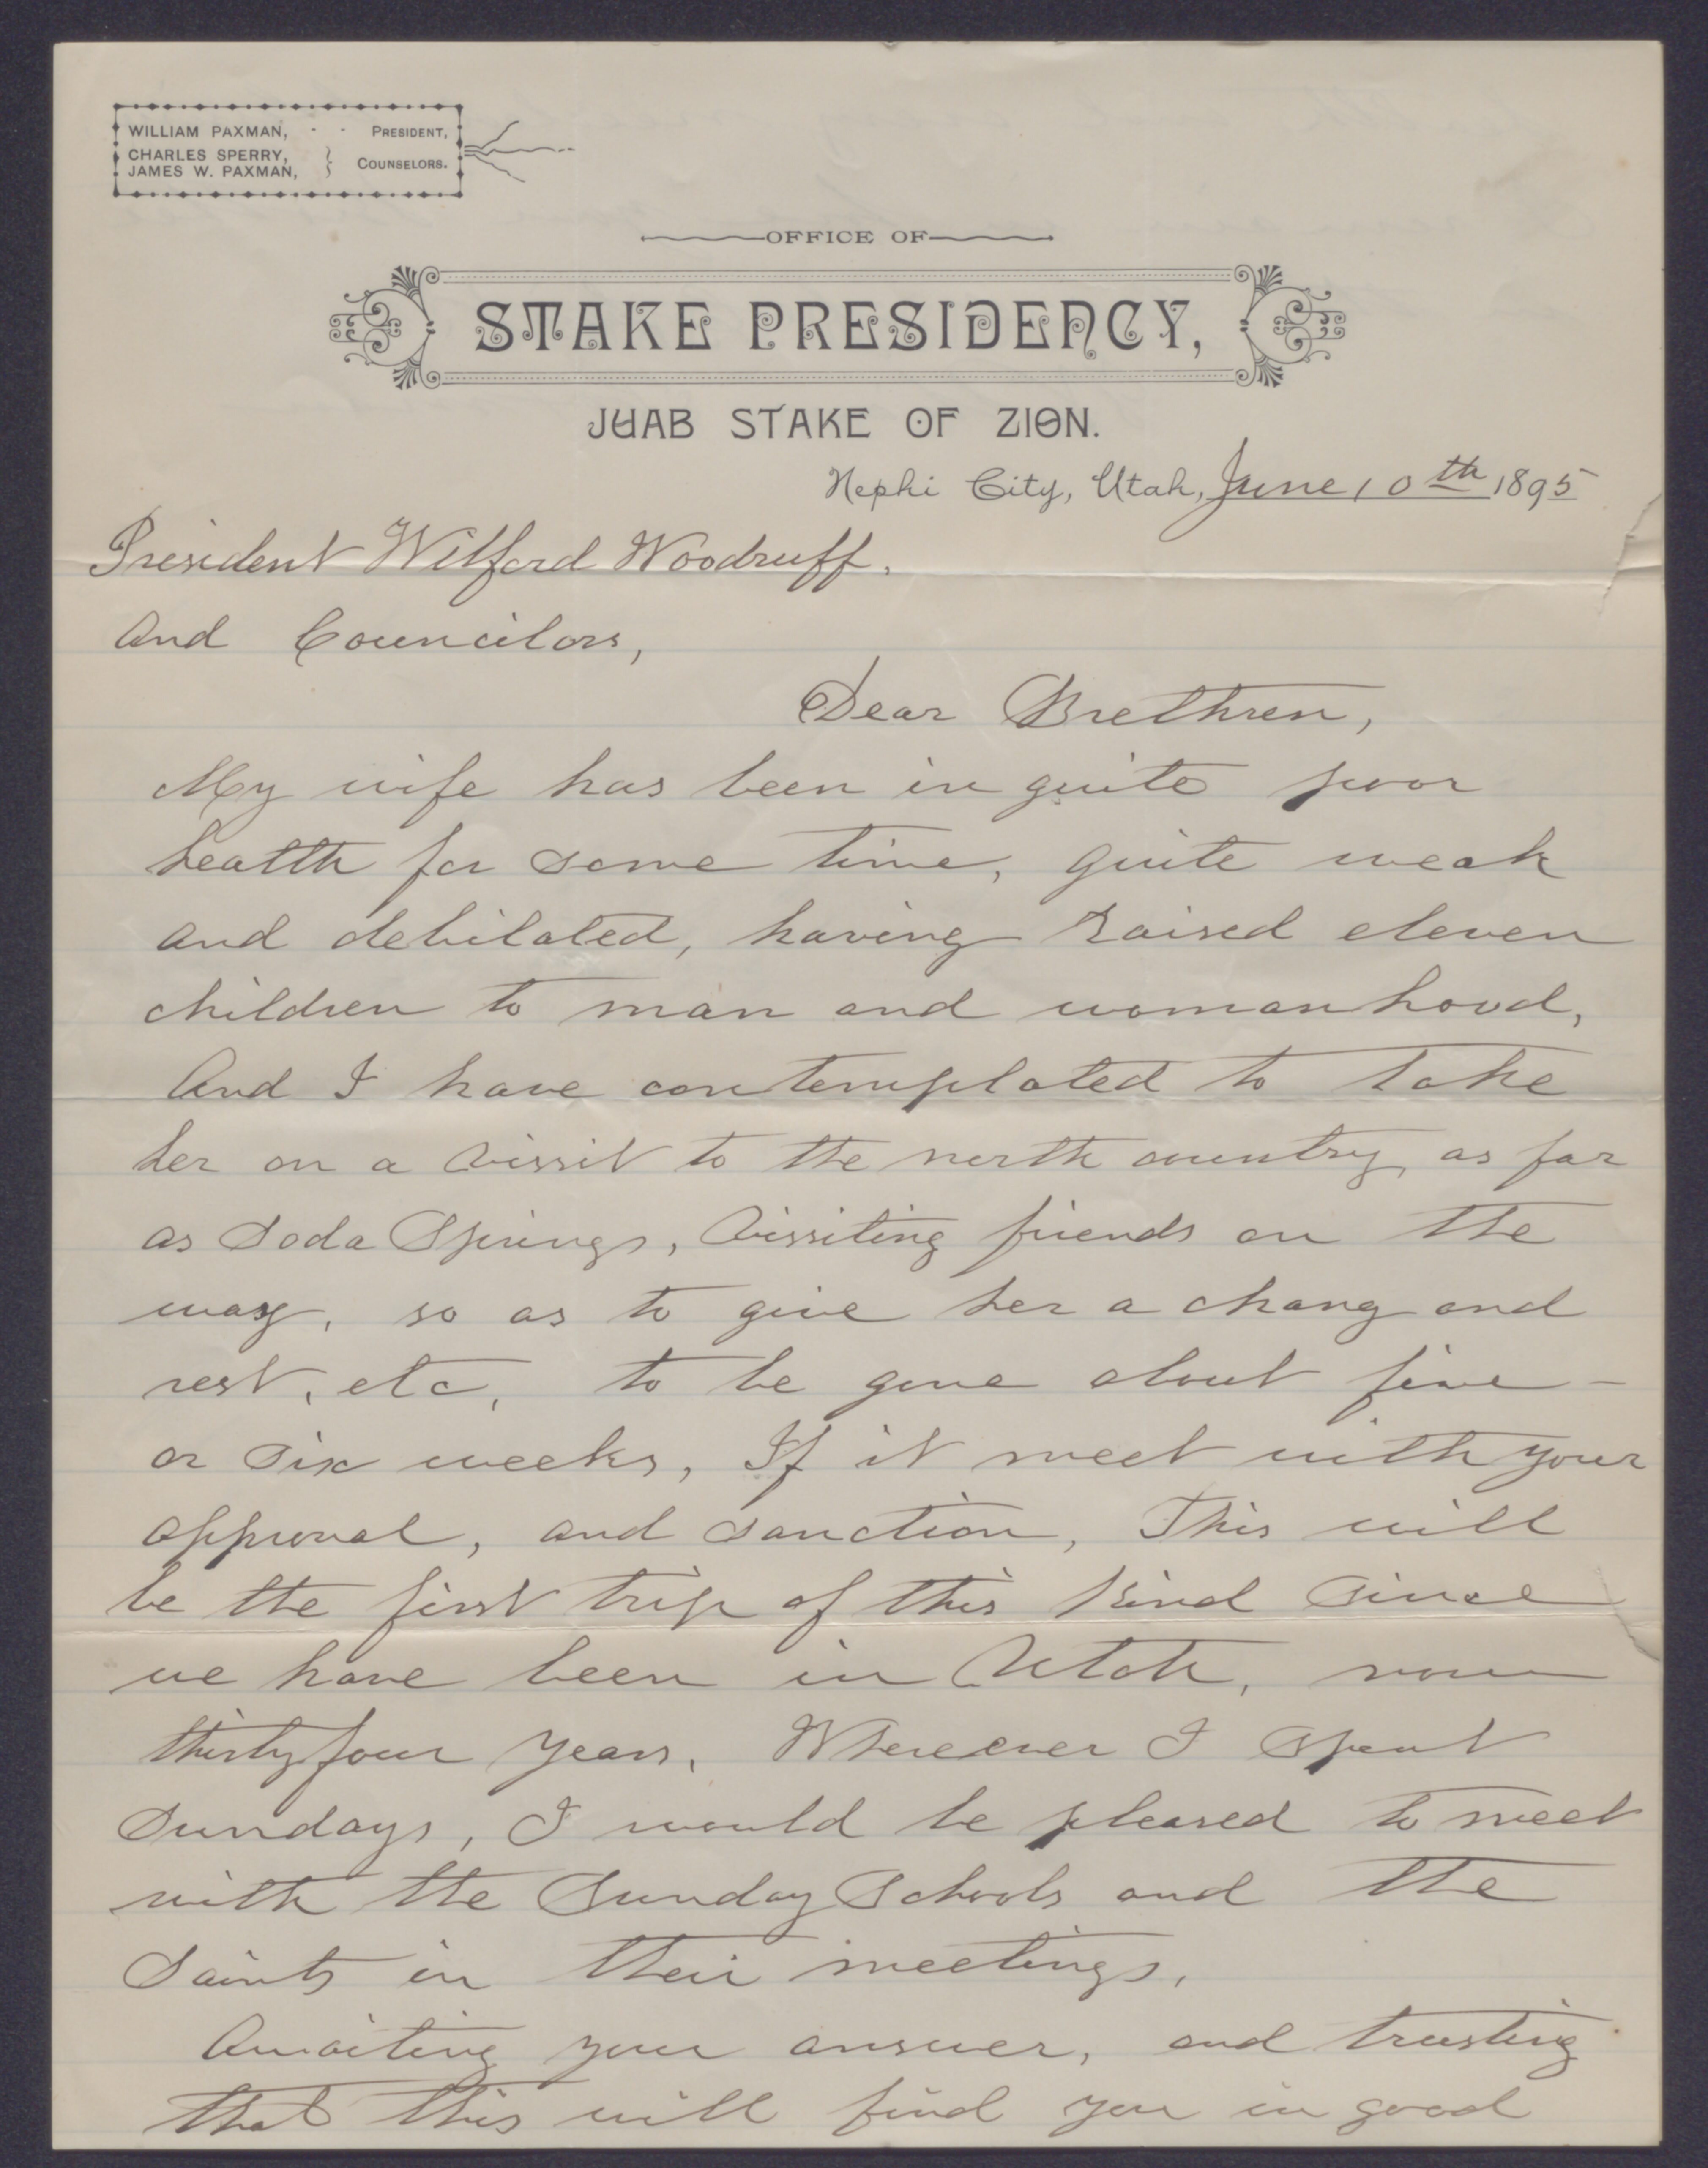 WILLIAM PAXMAN, - - PRESIDENT,
CHARLES SPERRY,
JAMES W. PAXMAN, } COUNSELORS.
OFFICE OF
STAKE PRESIDENCY,
JUAB STAKE OF ZION.
Nephi City, Utah, June 10th 1895
President Wilford Woodruff.
And Councilors,
Dear Brethren,
My wife has been in quite poor
health for some time, quite weak
and debilated, having raised eleven
children to man and womanhood,
And I have contemplated to take
her on a vissit to the north country, as far
as Soda Springs, vissiting friends on the
way, so as to give her a chang and
rest, etc, to be gone about five-
or six weeks, If it meet with your
approval, and sanction, This will
be the first trip of this kind since
we have been in Utah, now
thirty four years. Whereever I spent
Sundays, I would be pleased to meet
with the Sunday Schools and the
Saints in their meetings,
Awaiting your answer, and trusting
that this will find you in good